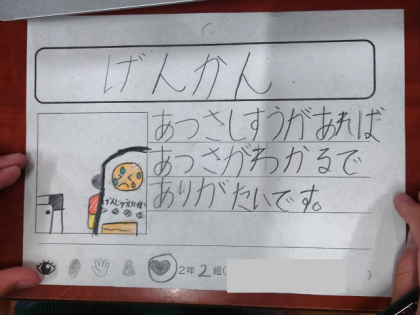 げんかん
あつさしすうがあれば
あつさがわかるで
ありがたいです。
2年2組(
)